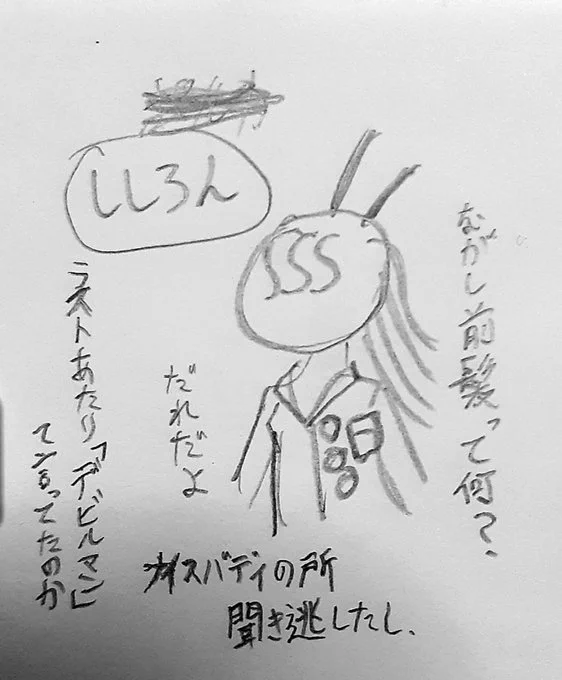 ししろん
SSS
むがし前髪って何？
だれだよ
ラストあたり「デビルマン」
て言ってたのか
ナイスバディの所
聞き逃したし、